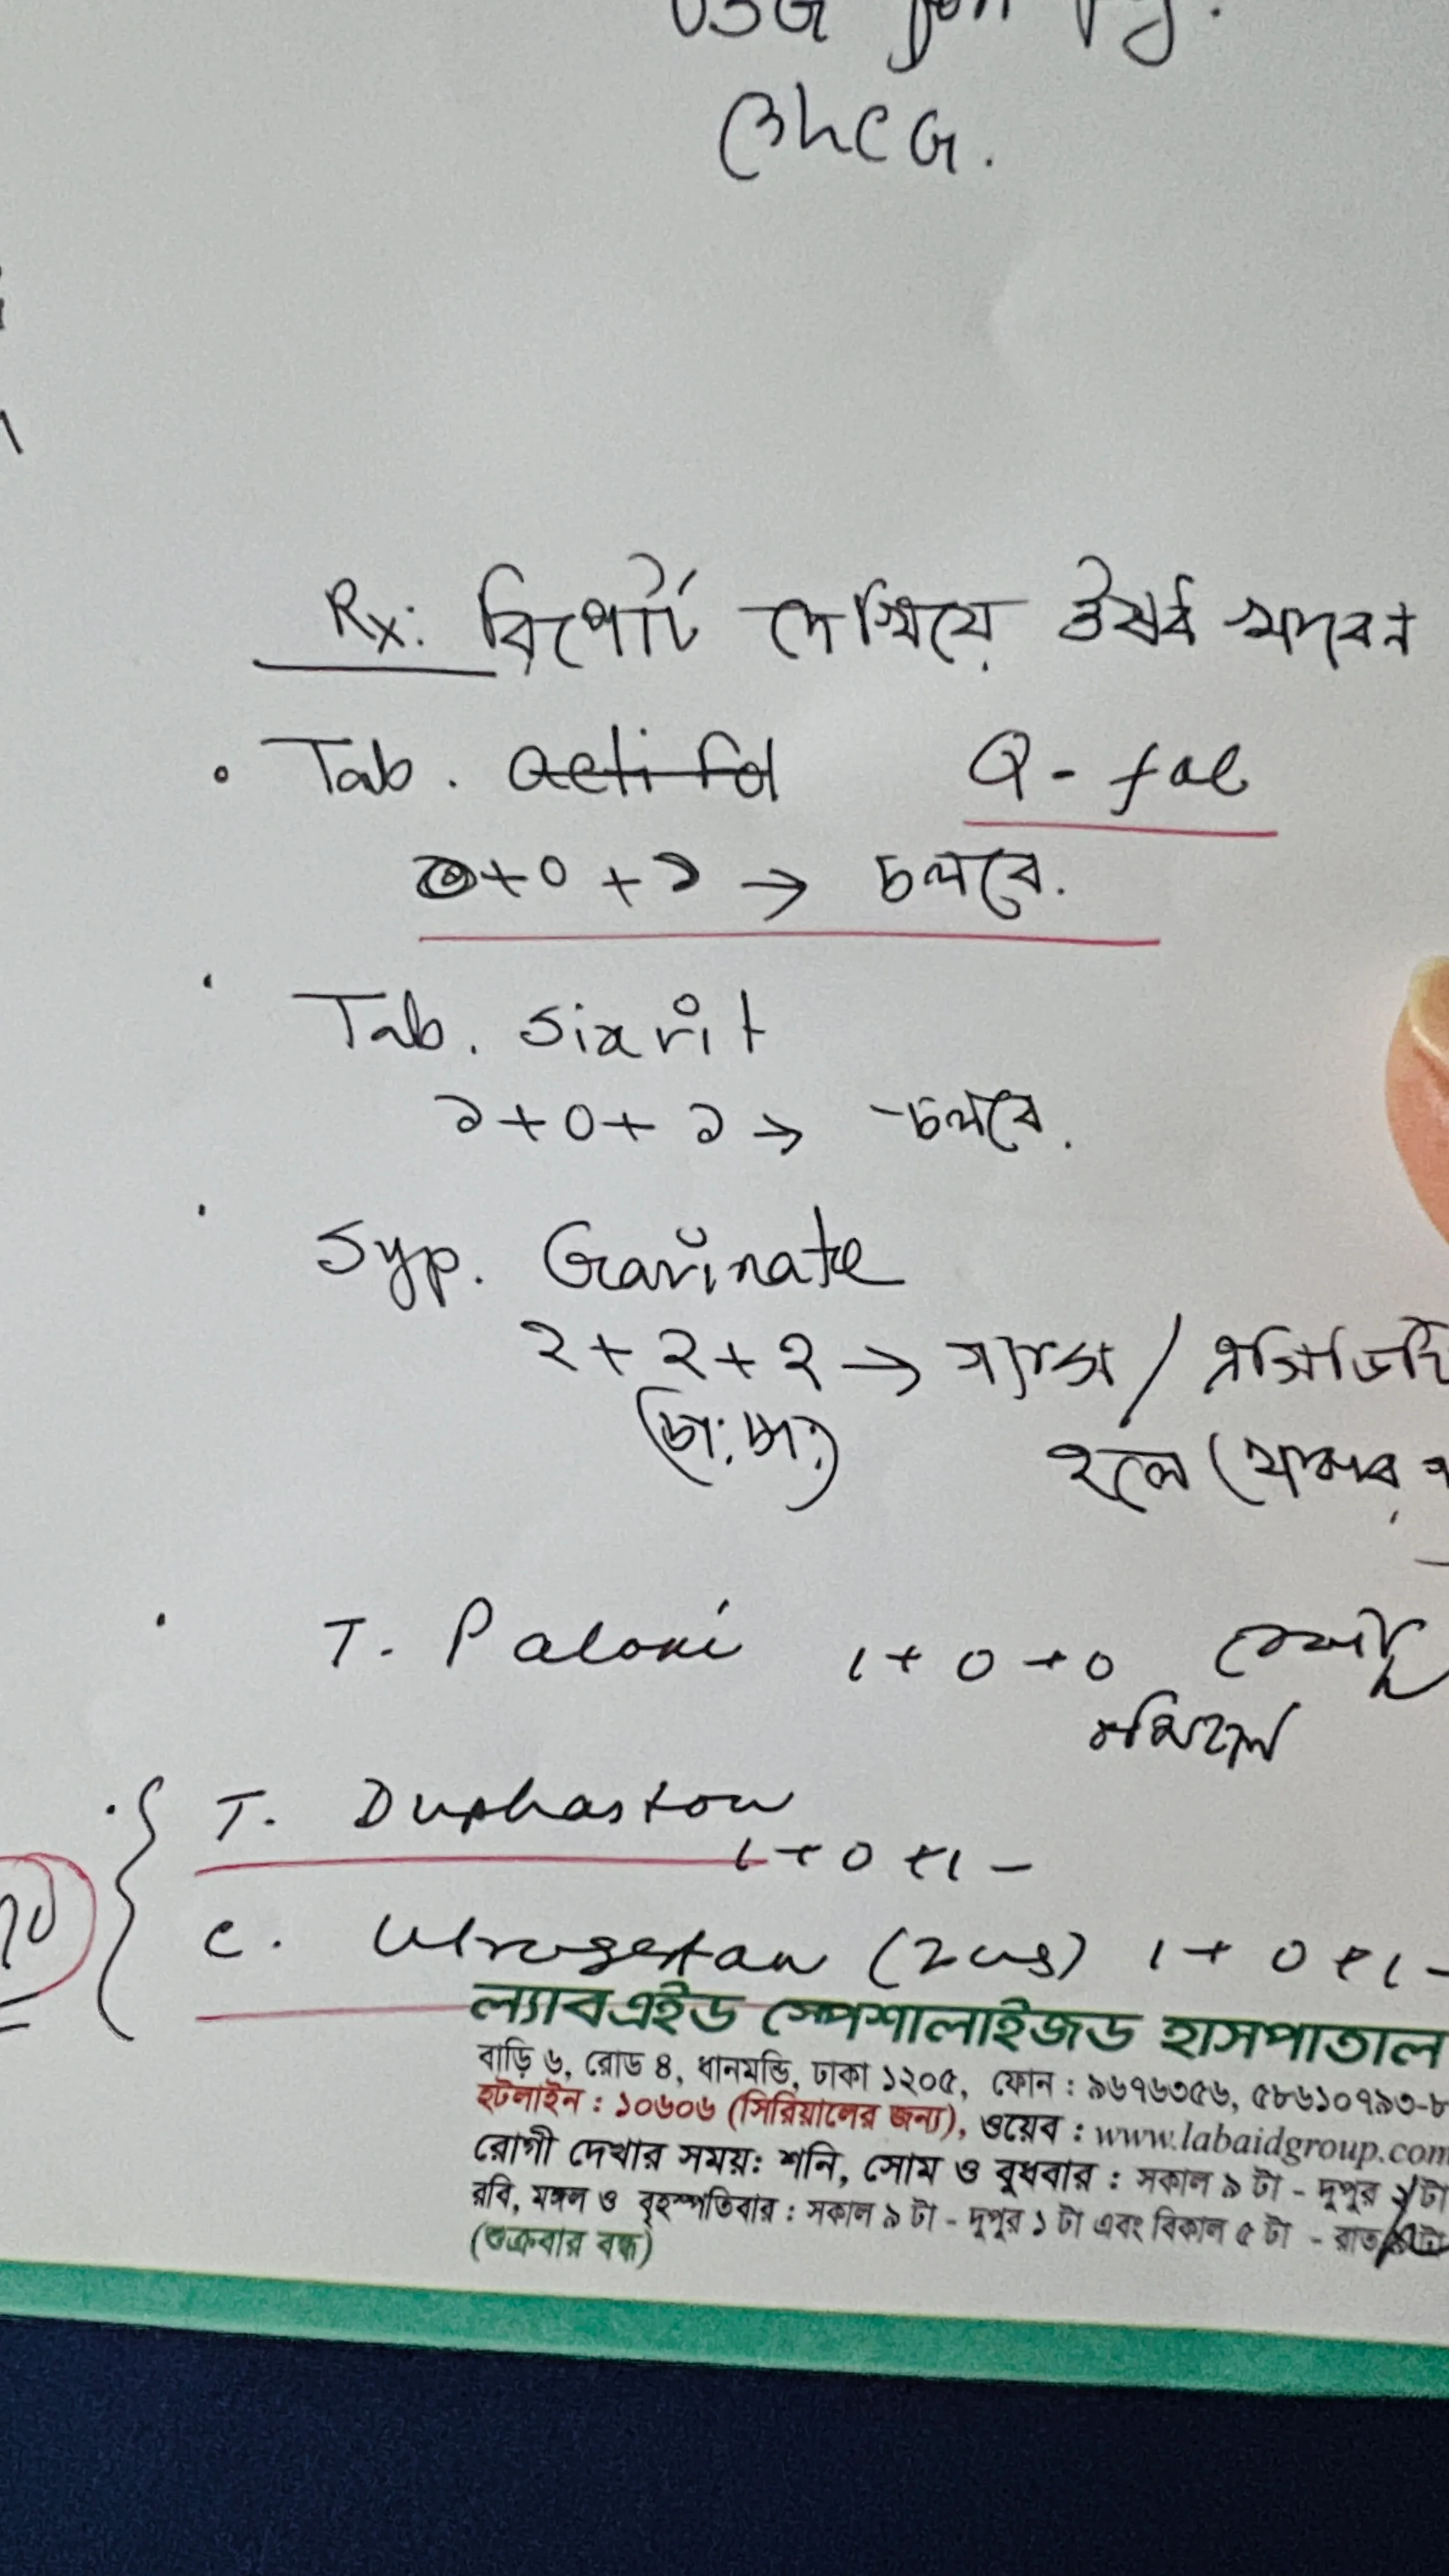 USG
βhCG.
Rx: রিপোর্ট দেখিয়ে ঔষধ খাবেন
• Tab. Acti fol Q-fol
০+০+১ → চলবে.
Tab. Sixvit
১+০+১ → চলবে.
Syp. Gavinate
২+২+২ → গ্যাস / এসিডিটি
(চা: চা:) হলে (খাবার
T. Paloxi 1+0+0
বমি হলে
T. Duphaston
1+0+1 -
C. Utrogestan (200) 1+0+1 -
ল্যাবএইড স্পেশালাইজড হাসপাতাল
বাড়ি ৬, রোড ৪, ধানমন্ডি, ঢাকা ১২০৫, ফোন : ৯৬৭৬৩৫৬, ৫৮৬১০৭৯৩-৮
হটলাইন : ১০৬০৬ (সিরিয়ালের জন্য), ওয়েব : www.labaidgroup.com
রোগী দেখার সময়: শনি, সোম ও বুধবার : সকাল ৯ টা - দুপুর টা
রবি, মঙ্গল ও বৃহস্পতিবার : সকাল ৯ টা - দুপুর ১ টা এবং বিকাল ৫ টা - রাত টা
(শুক্রবার বন্ধ)